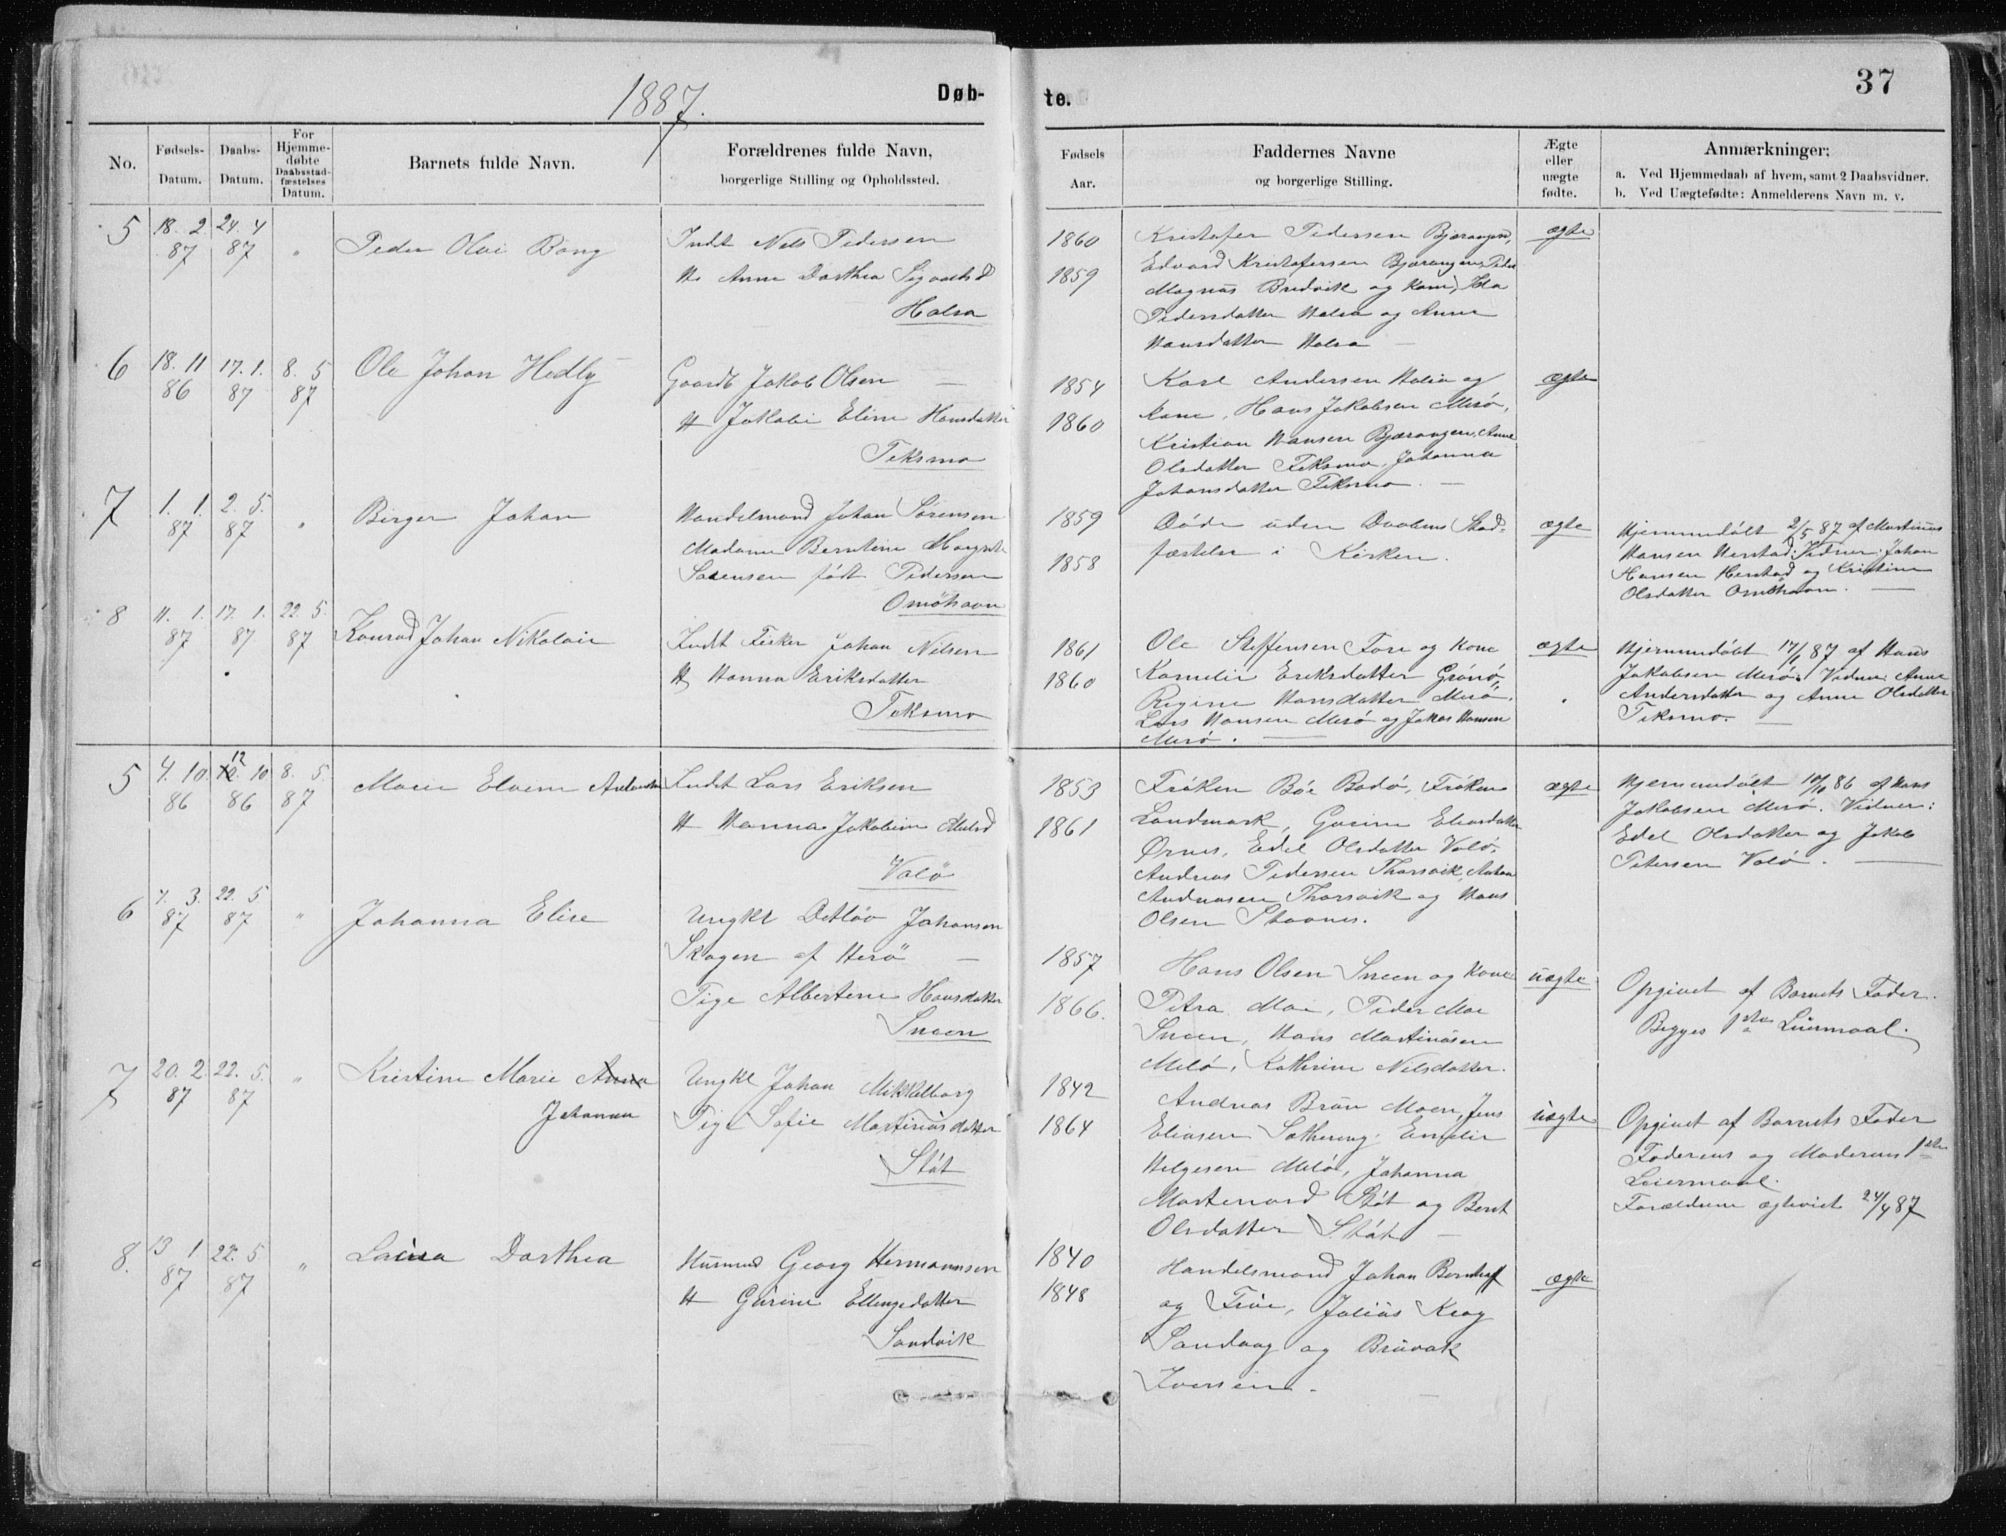 1887.
Døb-
te.
37
No.
Fødsels-
Datum.
Daabs-
Datum.
For
Hjemme-
døbte
Daabsstad-
fæstelses
Datum.
Barnets fulde Navn.
Forældrenes fulde Navn,
borgerlige Stilling og Opholdssted.
Fødsels
Aar.
Faddernes Navne
og borgerlige Stilling.
Ægte
eller
uægte
fødte.
Anmærkninger;
a. Ved Hjemmedaab af hvem, samt 2 Daabsvidner.
b. Ved Uægtefødte: Anmelderens Navn m. v.
5
18. 2
87
24. 4
87
"
Peder Olai Bang
Indt Nils Pedersen
H. Anne Dorthea
Halsa
1860
1859
Kristofer Pedersen Bjærangen,
Edvard Kristofersen Bjærangen, Peder
Magnus Bredvik og Kone, Ida
Pedersdatter Halsa og Anne
Hansdatter Halsa —
ægte
6
18. 11
86
17. 1.
87
8. 5
87
Ole Johan Hedly
Gaardb Jakob Olsen —
H Jakobi Eline Hansdatter
Teksmo
1854
1860
Karl Andersen Halsa og
kone, Hans Jakobsen Mesø,
Kristian Hansen Bjærangen, Anne
Olsdatter Teksmo, Johanna
Johansdatter Teksmo. —
ægte
7
1. 1.
87
2. 5.
87
"
Birger Johan
Handelsmand Johan Sørensen
Madame Berntine
Sørensen født Pedersen
Omøhavn
1859
1858
Døde uden Daabens Stad-
fæstelse i Kirken.
ægte
Hjemmedøbt 2/5 87 af Martinus
Hansen Herstad. Vidner: Johan
Hansen Herstad og Kristine
Olsdatter Omøhavn. —
8
11. 1.
87
17. 1.
87
22. 5.
87
Konrad Johan Nikolai
Indt Fisker Johan Nilsen
H Hanna Eriksdatter
Teksmo
1861
1860
Ole Steffensen Fore og kone
Kornelie Eriksdatter Grønø,
Regine Hansdatter Mesø,
Lars Hansen Mesø og Jakob Hansen
Mesø. —
ægte
Hjemmedøbt 17/1 87 af Hans
Jakobsen Mesø. Vidner: Anne
Andersdatter og Anne Olsdatter
Teksmo. —
5
4. 10.
86
12
10
86
8. 5.
87
Marie Elvine
Indt Lars Eriksen
H Hanna Jakobine
Valø
1853
1861
Frøken Bøe Bodø, Frøken
Landmark, Gusine Eliasdatter
Ørnes, Edel Olsdatter Valø.
Andreas Pedersen Thorsvik, Anton
Andreasen Thorsvik og Hans
Olsen Stavnes.
ægte
Hjemmedøbt 10/10 86 af Hans
Jakobsen Mesø. Vidner:
Edel Olsdatter og Jakob
Petersen Valø. —
6
7. 3.
87
22. 5
87
"
Johanna Elise
Ungkl Detløv Johansen
Skagen af Herø —
Pige Albertine Hansdatter
Sneen
1857
1866.
Hans Olsen Sneen og Kone
Petra Moe, Peder Moe
Sneen, Hans Martinusen
Melø, Kathrine Nilsdatter.
uægte
Opgivet af Barnets Fader.
Begges 1ste Leiermaal.
7
20. 2.
87
22. 5.
87
"
Kristine Marie Anna
Johanna
Ungkl Johan Mikkelborg
Pige Sofie Martinusdatter
Støt
1842
1864
Andreas Bruun Moen, Jens
Eliasen Søthering, Emilie
Helgesen Melø, Johanna
Støt og Berit
Olsdatter Støt —
uægte
Opgivet af Barnets Fader
Faderens og Moderens 1ste
Leiermaal.
Forældrene ægteviet 24/4 87
8.
13 1
87
22. 5
87
"
Laura Dorthea
Husmd Georg Hermannsen
H Gurine Ellingsdatter
Sandvik
1840
1848
Handelsmand Johan Bernhoff
og Frue, Julius Krog
Sandvaag og
Iversen. —
ægte